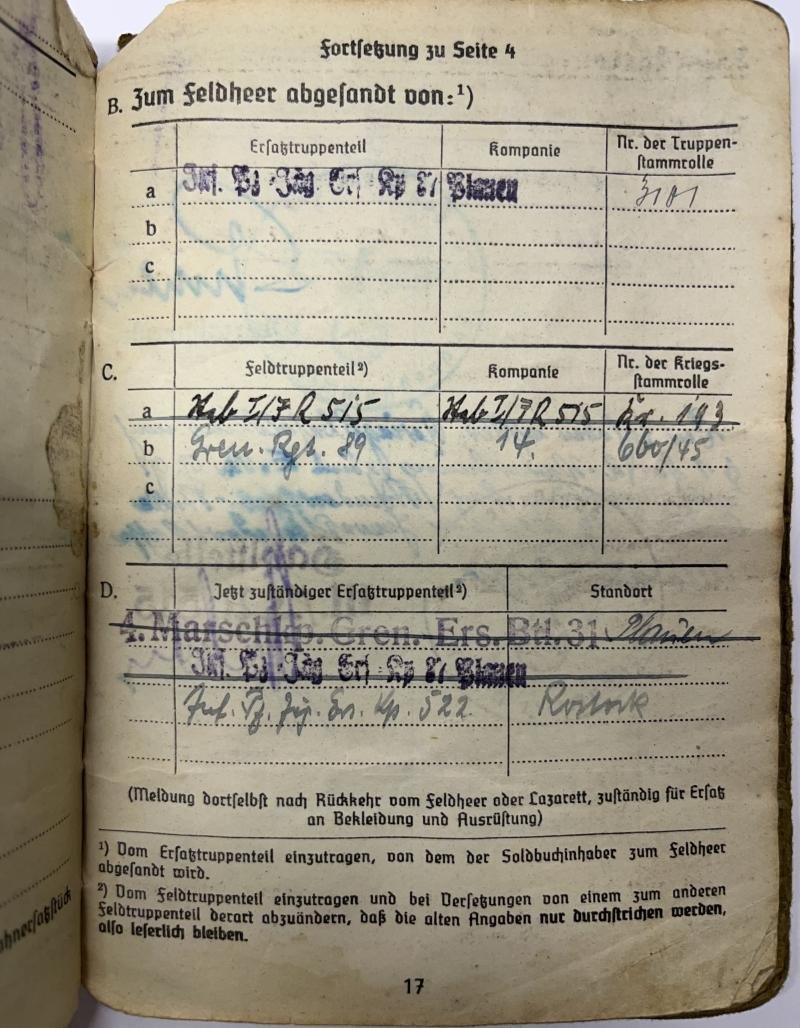 Fortsetzung zu Seite 4
B. Zum Feldheer abgesandt von:¹)
Ersatztruppenteil Kompanie Nr. der Truppen-
stammrolle
a Inf. Pz Jäg Ers Kp 87 Plauen 3101
b
c
C. Feldtruppenteil²) Kompanie Nr. der Kriegs-
stammrolle
a Stab I/J R 515 Stab I/J R 515 Kr. 193
b Gren. Rgt. 89 14. 660/45
c
D. Jetzt zuständiger Ersatztruppenteil²) Standort
4. Marschkp. Gren.-Ers. Btl. 31 Plauen
Inf. Pz Jäg Ers Kp 87 Plauen
Inf. Pz. Jäg. Ers. Kp. 522 Rostock
(Meldung dortselbst nach Rückkehr vom Feldheer oder Lazarett, zuständig für Ersatz
an Bekleidung und Ausrüstung)
¹) Vom Ersatztruppenteil einzutragen, von dem der Soldbuchinhaber zum Feldheer
abgesandt wird.
²) Vom Feldtruppenteil einzutragen und bei Versetzungen von einem zum anderen
Feldtruppenteil derart abzuändern, daß die alten Angaben nur durchstrichen werden,
also leserlich bleiben.
17